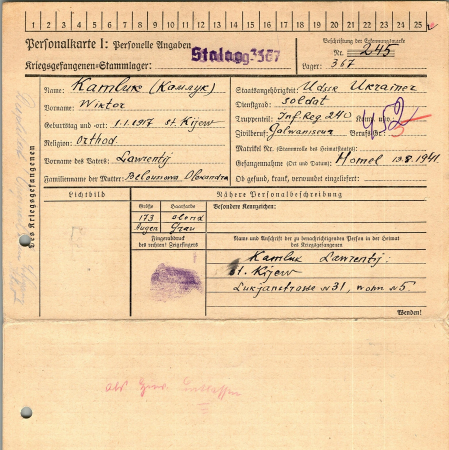 1 2 3 4 5 6 7 8 9 10 11 12 13 14 15 16 17 18 19 20 21 22 23 24 25
Personalkarte I: Personelle Angaben
Kriegsgefangenen-Stammlager:
Stalag 367
Beschriftung der Erkennungsmarke
Nr. 245
Lager: 367
Des Kriegsgefangenen
Name: Kamluk (Камлук)
Vorname: Wiktor
Geburtstag und -ort: 1.1.1917 st. Kijew
Religion: Orthod.
Vorname des Vaters: Lawrentij
Familienname der Mutter: Belousowa Olexandra
Staatsangehörigkeit: Udssr Ukrainer
Dienstgrad: soldat
Truppenteil: Inf Reg 240 Komp. usw.
Zivilberuf: Berufsgr.:
Matrikel Nr. (Stammrolle des Heimatstaates):
Gefangennahme (Ort und Datum): Homel 19.8.1941
Ob gesund, krank, verwundet eingeliefert:
Lichtbild
Nähere Personalbeschreibung
Größe Haarfarbe
173 blond
Augen Grau
Fingerabdruck
des rechten! Zeigefingers
Besondere Kennzeichen:
Name und Anschrift der zu benachrichtigenden Person in der Heimat
des Kriegsgefangenen
Kamluk Lawrentij
st. Kijew
Lukjanstrasse N31, wohn N5.
Wenden!
als entlassen